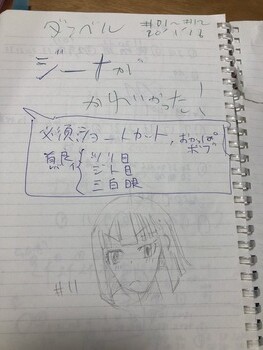 ダラベル
#01〜#12
ジーナが
かわいかった!
必須ショートカート, おかっぱ
ボブ
ツリ目
ジト目
三白眼
#11